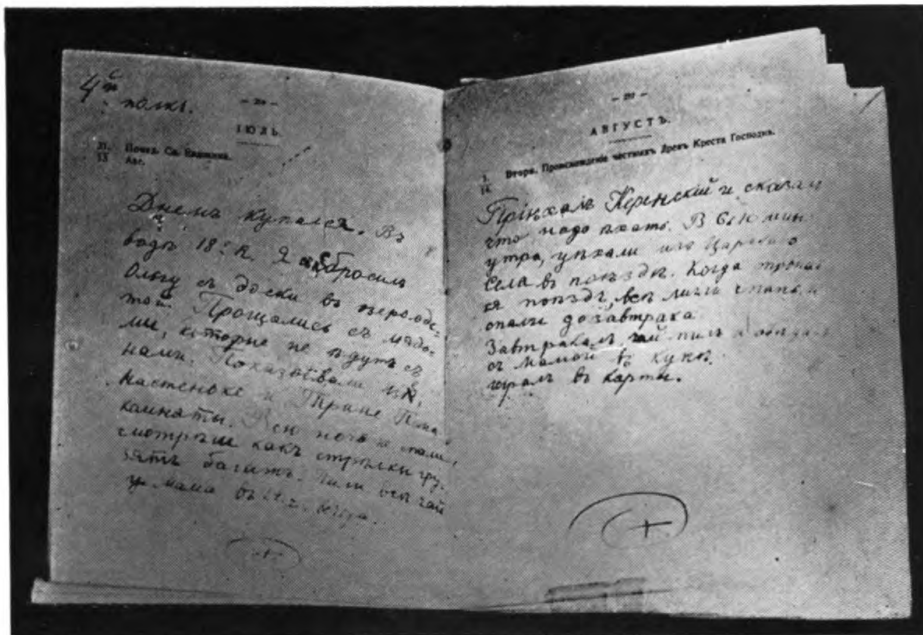 4й
полкъ.
— 210 —
ІЮЛЬ.
31. Понед. Св. Евдокима.
13 Авг.
Днемъ купался. Въ
водѣ 18° R. Я сбросилъ
Ольгу съ доски въ
той. Прощались съ людь-
ми, которые не ѣдутъ съ
нами. Показывали
Настеньке и
комнаты. Всю ночь не спали
смотрѣли какъ стрѣлки гру-
зятъ багажъ. Пили всѣ чай
у Мама въ
— 211 —
АВГУСТЪ.
1. Вторн. Происхожденіе честныхъ Древъ Креста Господня.
14.
Пріѣхалъ Керенскій и сказалъ
что надо ѣхать. В 6 ч. 10 мин.
утра, уѣхали изъ Царскаго
Села въ поѣздѣ. Когда тронул
ся поѣздъ, всѣ легли спать, и
спали до завтрака.
Завтракалъ, чай пилъ и обѣдалъ
съ Мамой въ купѣ.
игралъ въ карты.